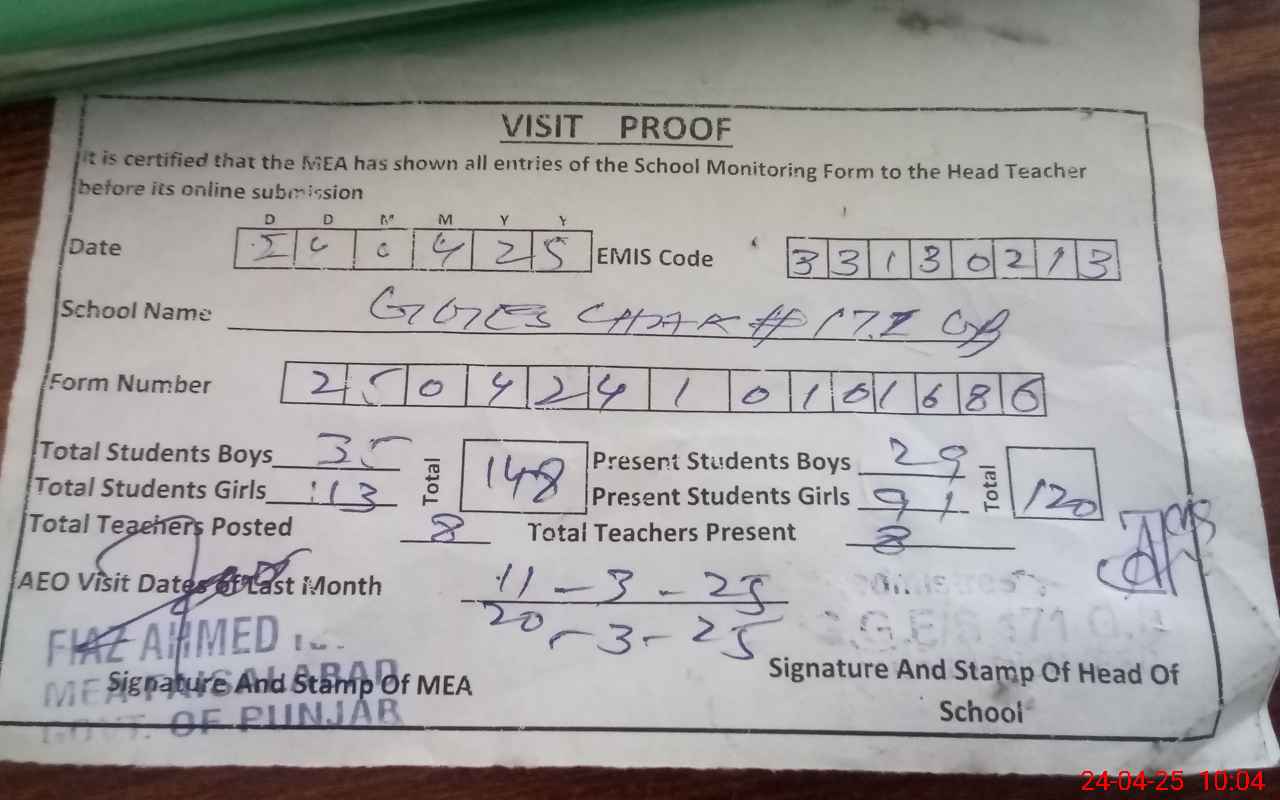 VISIT PROOF
It is certified that the MEA has shown all entries of the School Monitoring Form to the Head Teacher
before its online submission
D D M M Y Y
Date 2 4 0 4 2 5 EMIS Code 3 3 1 3 0 2 1 3
School Name GGES CHAK # 171 GB
Form Number 2 5 0 4 2 4 1 0 1 0 1 6 8 6
Total Students Boys 35 Total 148 Present Students Boys 29 Total 120
Total Students Girls 113 Present Students Girls 91
Total Teachers Posted 8 Total Teachers Present 8
AEO Visit Dates of Last Month 11-3-25
20-3-25
FIAZ AHMED
MEA FAISALABAD
GOVT. OF PUNJAB
Signature And Stamp Of MEA
Signature And Stamp Of Head Of
School
24-04-25 10:04